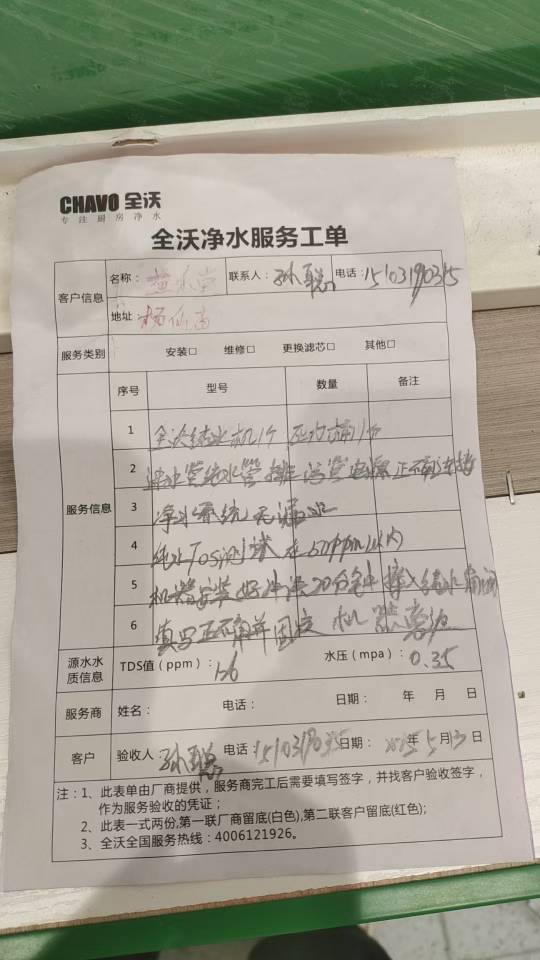 CHAVO 全沃
专注厨房净水
全沃净水服务工单
客户信息 名称: 联系人: 孙聪 电话:
地址: 杨仙
服务类别 安装□ 维修□ 更换滤芯□ 其他□
服务信息 序号 型号 数量 备注
1 全沃纯水机1个 压力桶1个
2 进水管纯水管排污管电源正确连接
3 净水系统无漏水
4 纯水TDS测试在50ppm以内
5 机器安装好冲洗20分钟
6 填写正确并固定 机
源水水质信息 TDS值(ppm): 水压(mpa): 0.35
服务商 姓名: 电话: 日期: 年 月 日
客户 验收人 孙聪 电话 日期: 年5月 日
注:1、此表单由厂商提供,服务商完工后需要填写签字,并找客户验收签字,
作为服务验收的凭证;
2、此表一式两份,第一联厂商留底(白色),第二联客户留底(红色);
3、全沃全国服务热线:4006121926。